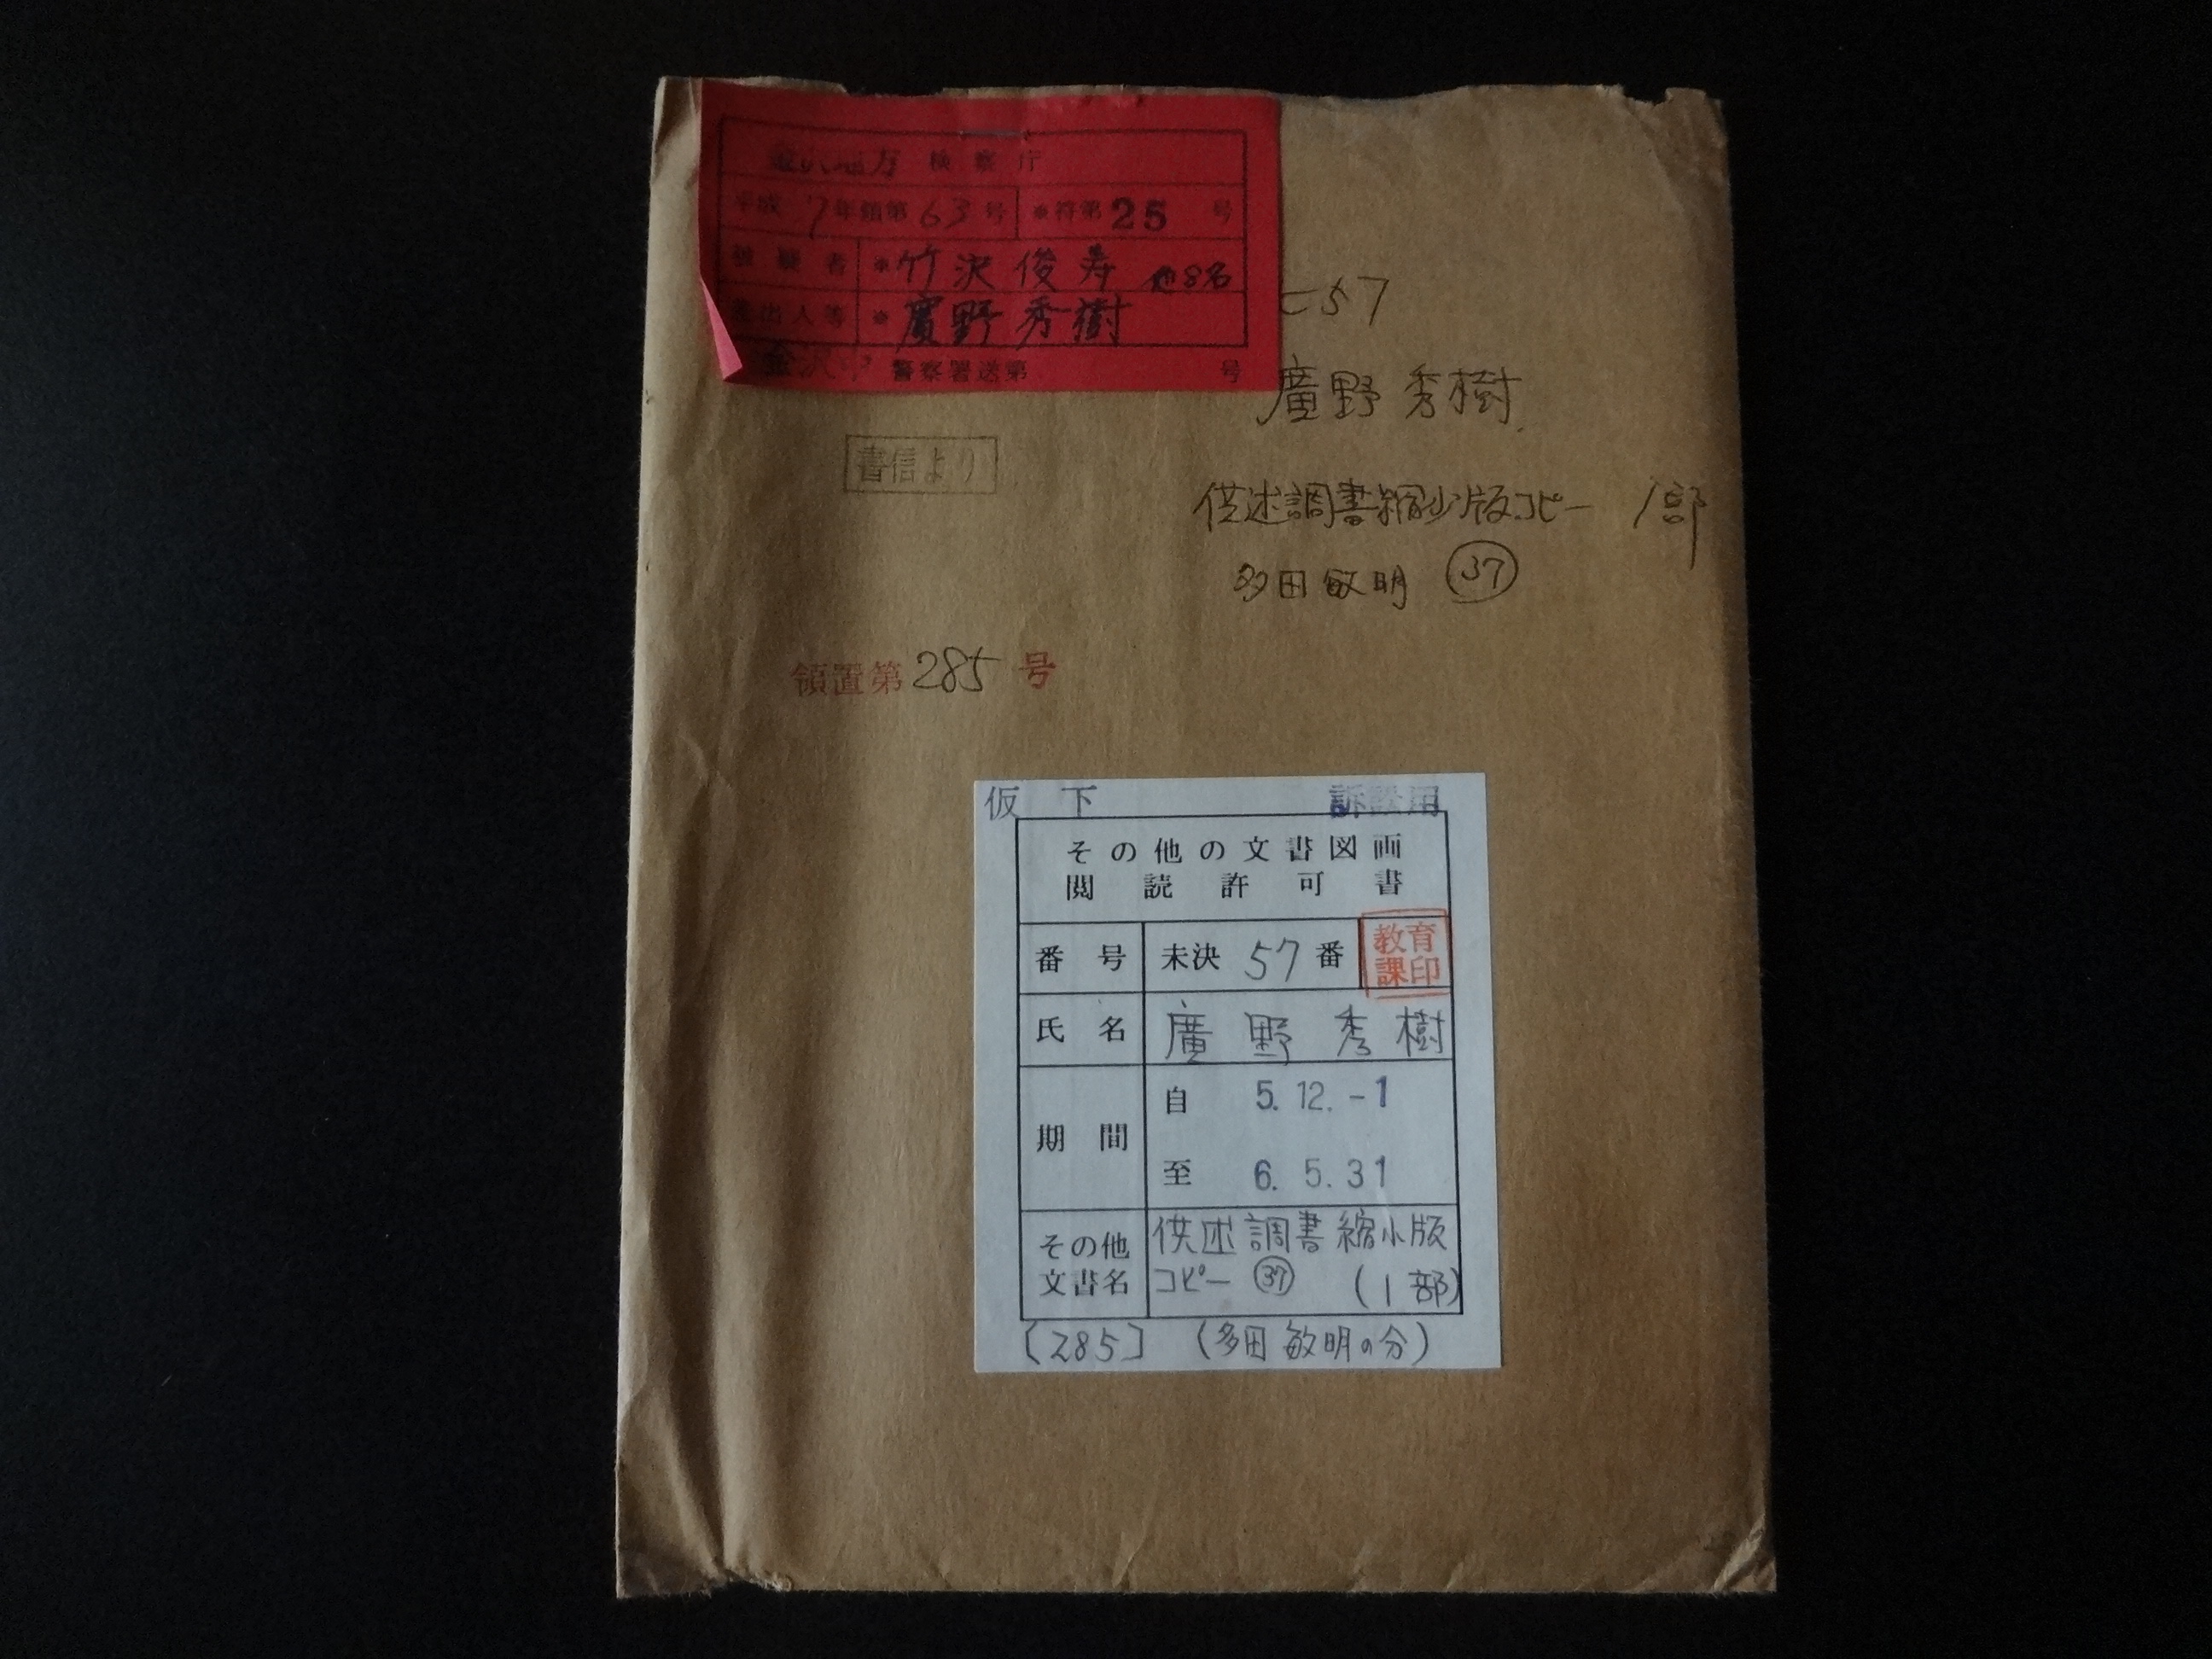 金沢地方 検察庁
平成 7年領第 63号 ※符第25 号
被疑者 ※竹沢俊寿 他8名
差出人等 ※廣野秀樹
金沢中 警察署送第 号
57
廣野秀樹
書信より
供述調書縮小版コピー 1部
多田敏明 ㊲
領置第285号
仮下 訴訟用
その他の文書図画
閲読許可書
番号 未決 57 番 教育課印
氏名 廣野秀樹
期間 自 5.12.-1
至 6.5.31
その他文書名 供述調書縮小版
コピー ㊲ (1部)
[285] (多田敏明の分)